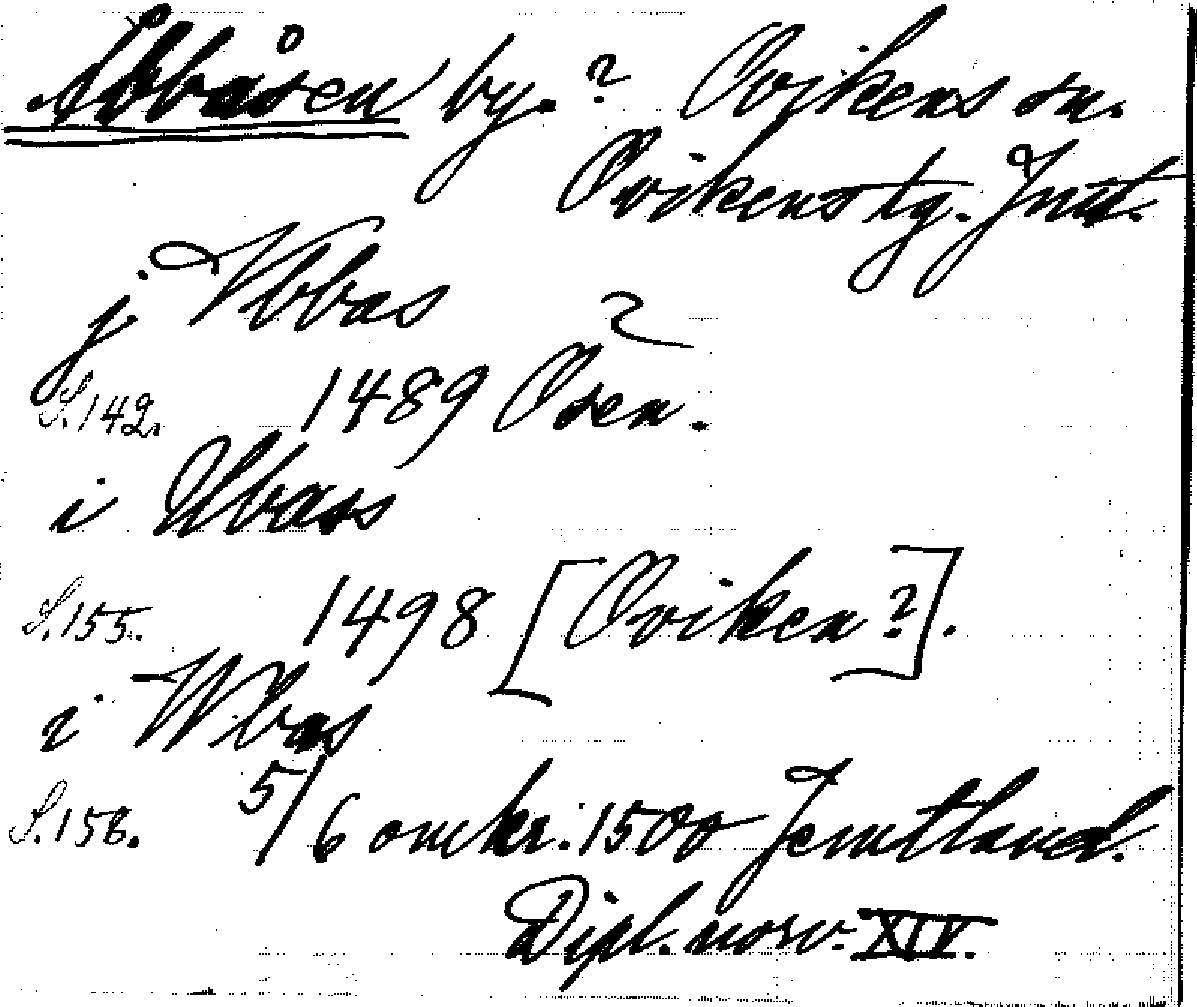 Åbbåsen by.? Ovikens sn.
Ovikens tg. Jmtl.
j Vbbas ?
S.142. 1489 Osen.
i Ubass
S.155. 1498 [Oviken?].
i Wbas
S.156. 5/6 omkr. 1500 Jemtland.
Dipl. norv. XIV.